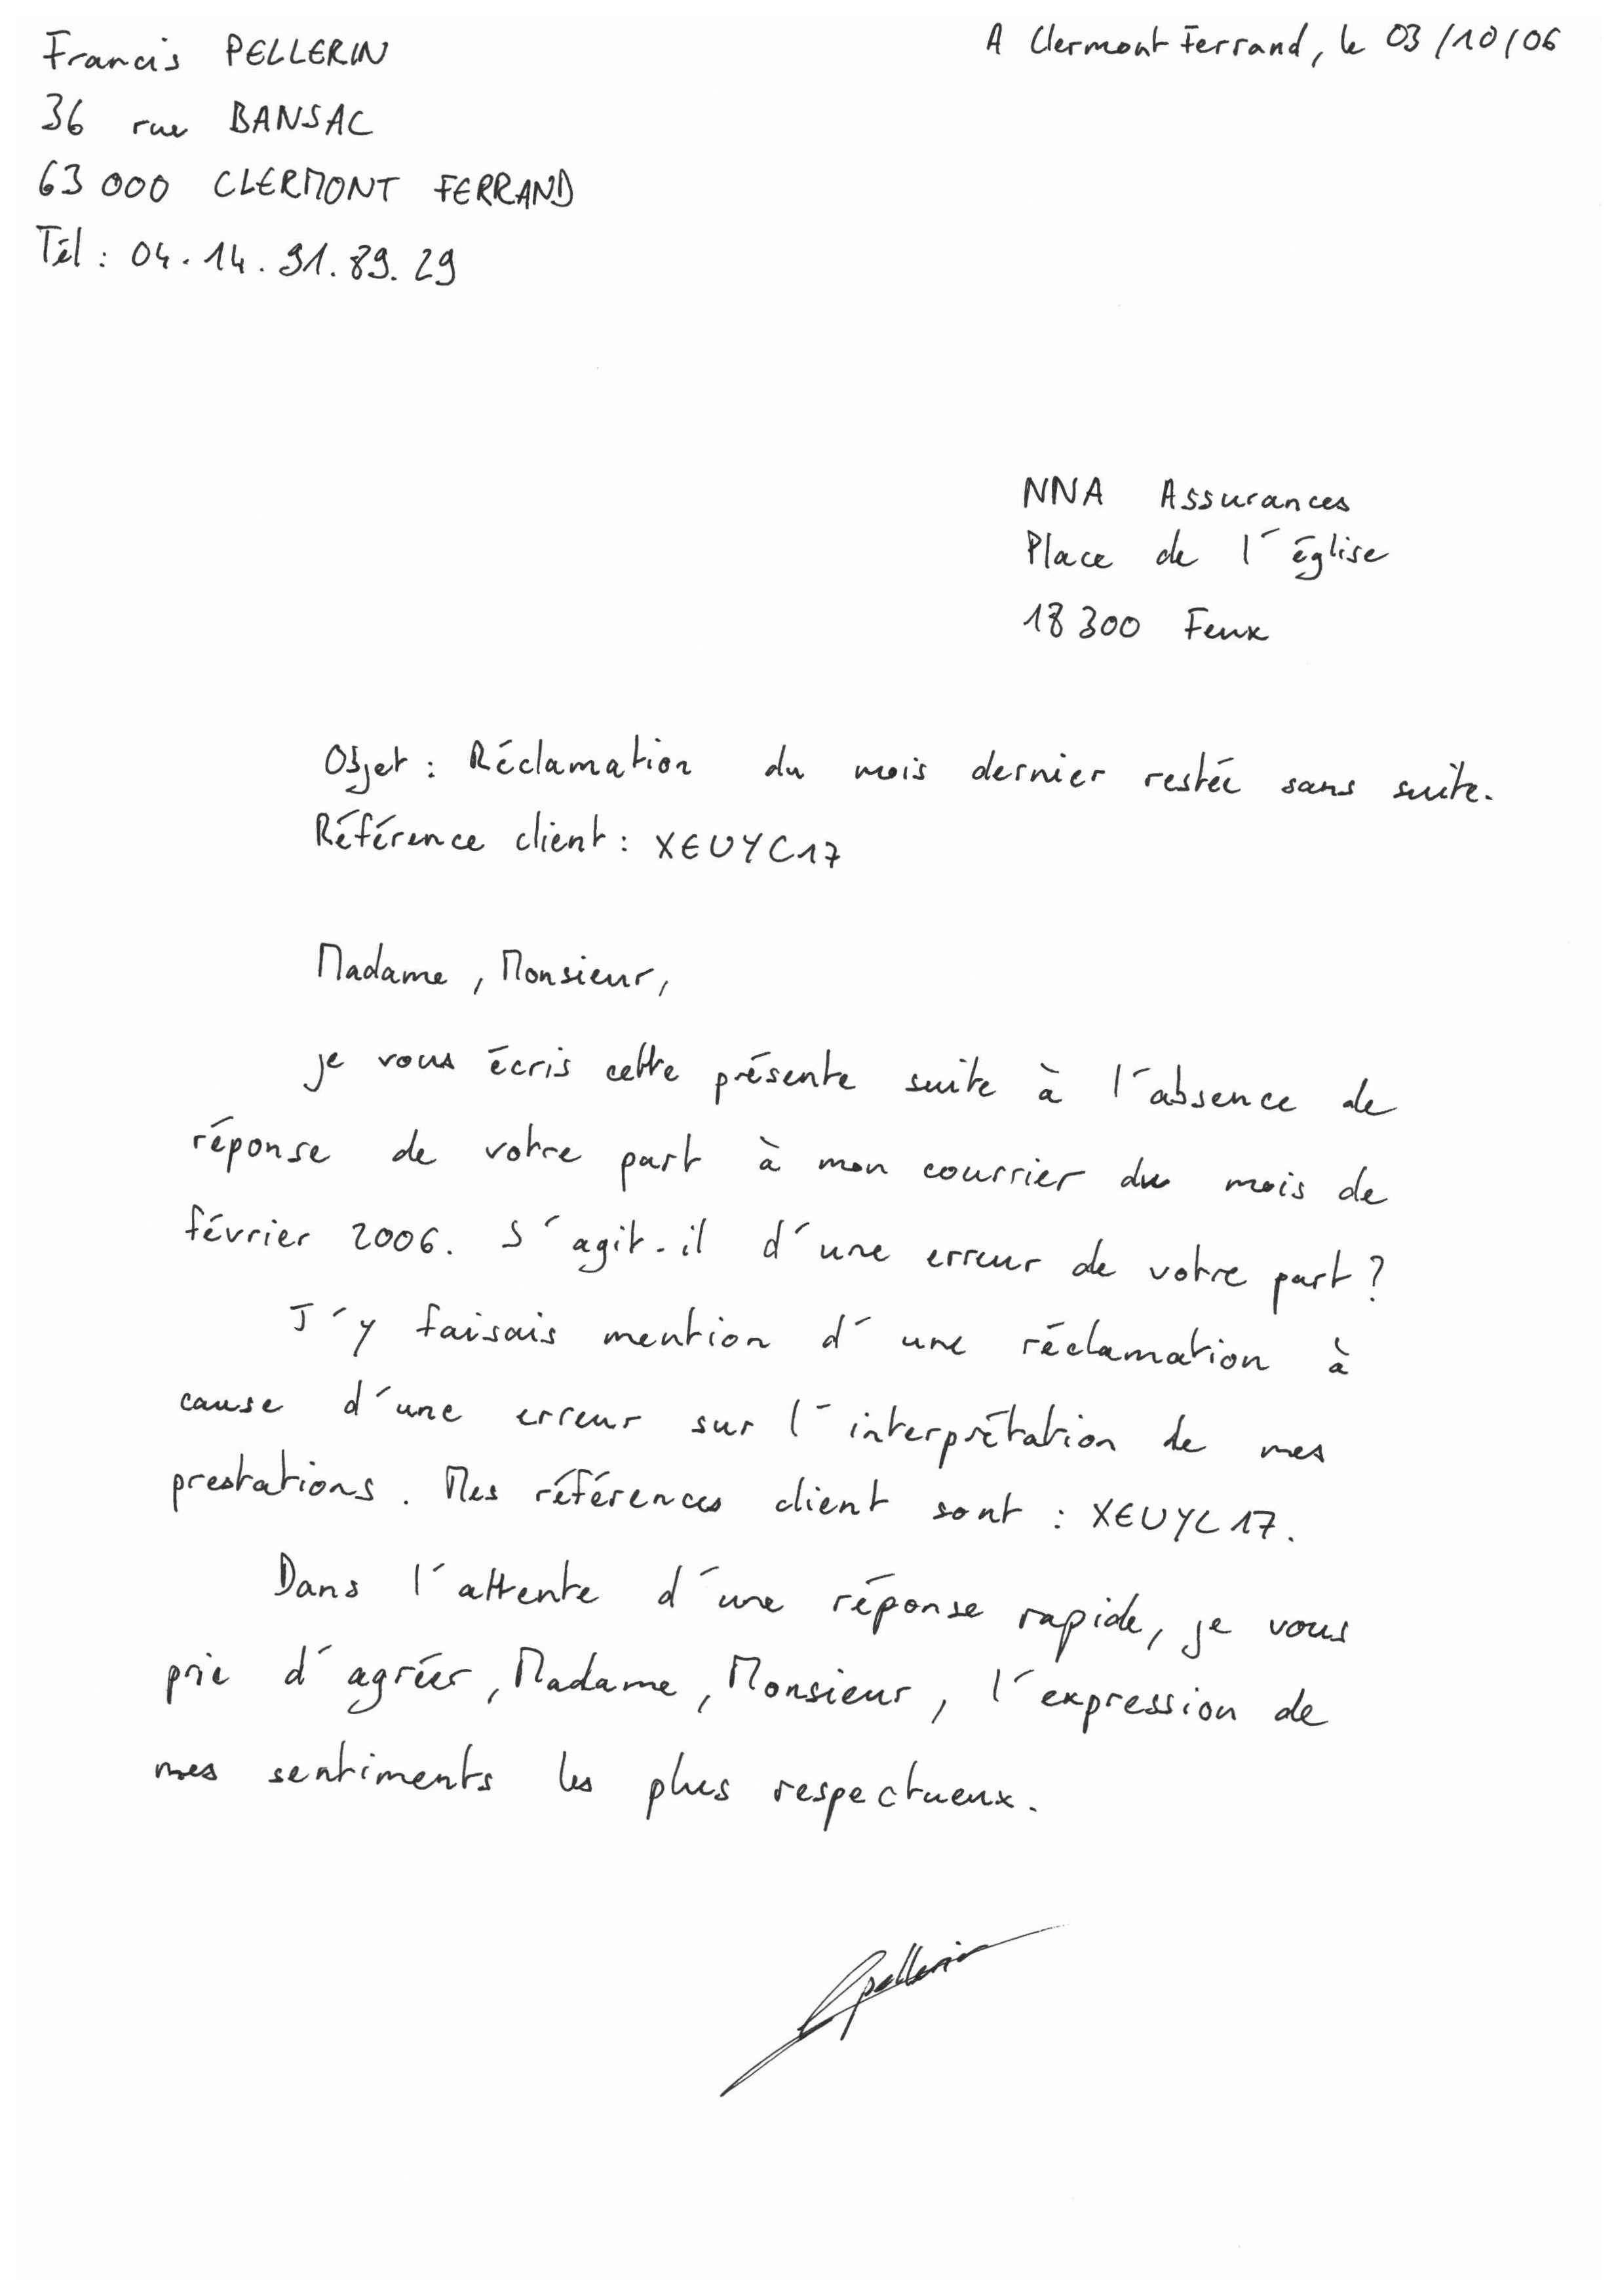 Francis PELLERIN
A Clermont Ferrand, le 03/10/06
36 rue BANSAC
63 000 CLERMONT FERRAND
Tél : 04.14.91.89.29
NNA Assurances
Place de l'église
18 300 Feux
Objet : Réclamation du mois dernier restée sans suite.
Référence client : XEUYC17
Madame, Monsieur,
je vous écris cette présente suite à l'absence de
réponse de votre part à mon courrier du mois de
février 2006. S'agit-il d'une erreur de votre part ?
J'y faisais mention d'une réclamation à
cause d'une erreur sur l'interprétation de mes
prestations. Mes références client sont : XEUYC17.
Dans l'attente d'une réponse rapide, je vous
prie d'agréer, Madame, Monsieur, l'expression de
mes sentiments les plus respectueux.
Pellerin